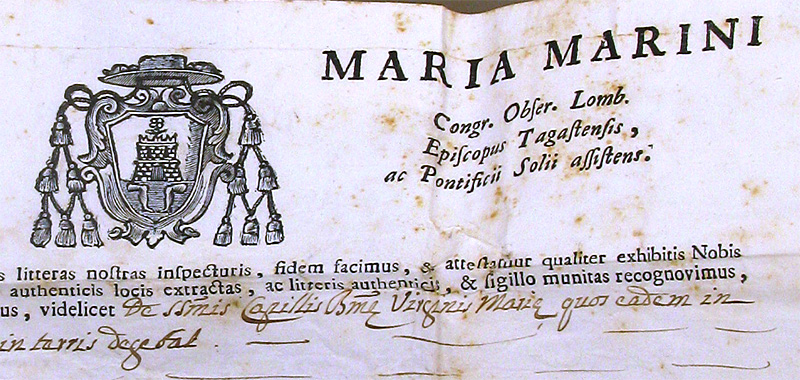 MARIA MARINI
Congr. Obſer. Lomb.
Epiſcopus Tagaſtenſis,
ac Pontificii Solii aſſiſtens.
s litteras noſtras inſpecturis, fidem facimus, & atteſtamur qualiter exhibitis Nobis
authenticis locis extractas, ac litteris authenticis, & ſigillo munitas recognovimus,
us, videlicet De SSm̃is Capillis Bmę Virginis Marię quos eadem in
in terris degebat.